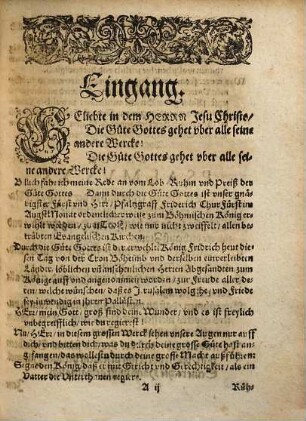 Eingang.
GEliebte in dem HERRN Jesu Christo/
Die Güte Gottes gehet vber alle seine
andere Wercke!
Die Güte Gottes gehet vber alle sei-
ne andere Wercke!
Also fahe ich meine Rede an vom Lob/ Ruhm vnd Preiß der
Güte Gottes. Dann durch die Güte Gottes ist vnser gnä-
digster Fürst vnd Herr/ Pfaltzgraff Friderich Churfürst im
AugstMonat ordentlicher weise zum Böhmischen König er-
wehlt worden/ zu Trost/ wie mir nicht zweiffelt/ allen be-
trübten Evangelischen Kirchen.
Durch die Güte Gottes ist der erwehlte König Friderich heut die-
sen Tag von der Cron Böheimb vnd derselben einverleibten
Länder/ löblichen ansehenlichen Herren Abgesandten zum
Könige auff vnd angenommen worden/ zur Freude aller de-
ren/ welche wünschen/ daß es Jerusalem wolgehe/ vnd Friede
sey inwendig in jhrer Pallästen.
HErr/ mein Gott/ groß sind deine Wunder/ vnd es ist freylich
vnbegreifflich/ wie du regierest!
Nu/ HErr/ in diesem grossen Werck sehen vnsere Augen nur auff
dich/ vnd bitten dich/ was du durch deine grosse Güte hast an-
gefangen/ das wollestu durch deine grosse Macht auch führen!
Segne den König/ daß er mit Gericht vnd Gerechtigkeit/ als ein
Vatter die Vnterthanen regiere.
A ij
Rüh-